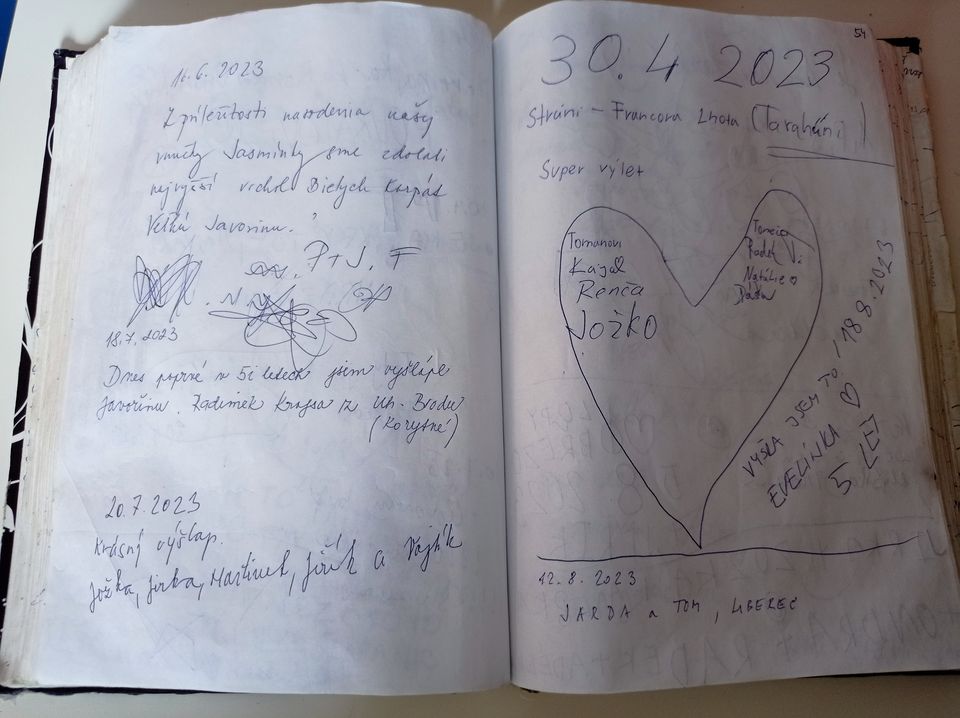 16.6.2023
Z príležitosti narodenia našej
vnučky Jasmínky sme zdolali
najvyšší vrchol Bielych Karpát
Veľkú Javorinu.
P+J, F
18.7.2023
Dnes poprvé v 5i letech jsem vyšlápl
Javořinu. Radimek Krajsa z Uh. Brodu
(Korytné)
20.7.2023
Krásný výšlap.
Jožka, Jirka, Martinek, Jiřík a Vojtík
54
30.4 2023
Strání - Francova Lhota (Tarahúni)
Super výlet
Tomanovi
Kájа
Renča
Jožko
Radek V.
Natálie
VYŠLA JSEM TO! 18.8.2023
EVELÍNKA ♡
5 LET
12.8.2023
JARDA a TOM, LIBEREC